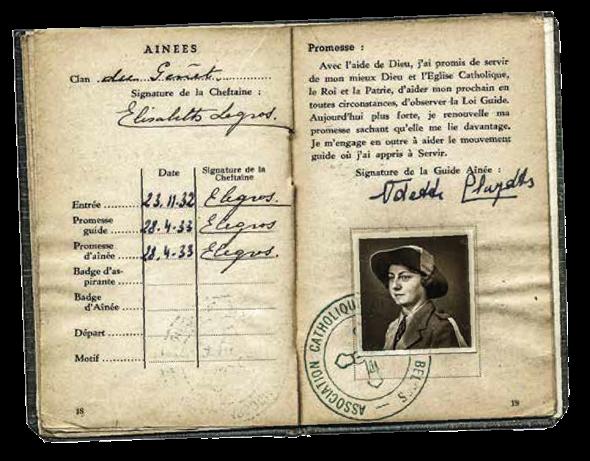 AINEES
Clan du
Signature de la Cheftaine :
Elisabeth Legros.
Date Signature de la Cheftaine
Entrée 23.11.32 Elegros.
Promesse guide 28.4.33 Elegros
Promesse d'aînée 28.4.33 Elegros.
Badge d'aspirante
Badge d'Aînée
Départ
Motif
18
Promesse :
Avec l'aide de Dieu, j'ai promis de servir
de mon mieux Dieu et l'Eglise Catholique,
le Roi et la Patrie, d'aider mon prochain en
toutes circonstances, d'observer la Loi Guide.
Aujourd'hui plus forte, je renouvelle ma
promesse sachant qu'elle me lie davantage.
Je m'engage en outre à aider le mouvement
guide où j'ai appris à Servir.
Signature de la Guide Aînée :
ASSOCIATION CATHOLIQUE
19